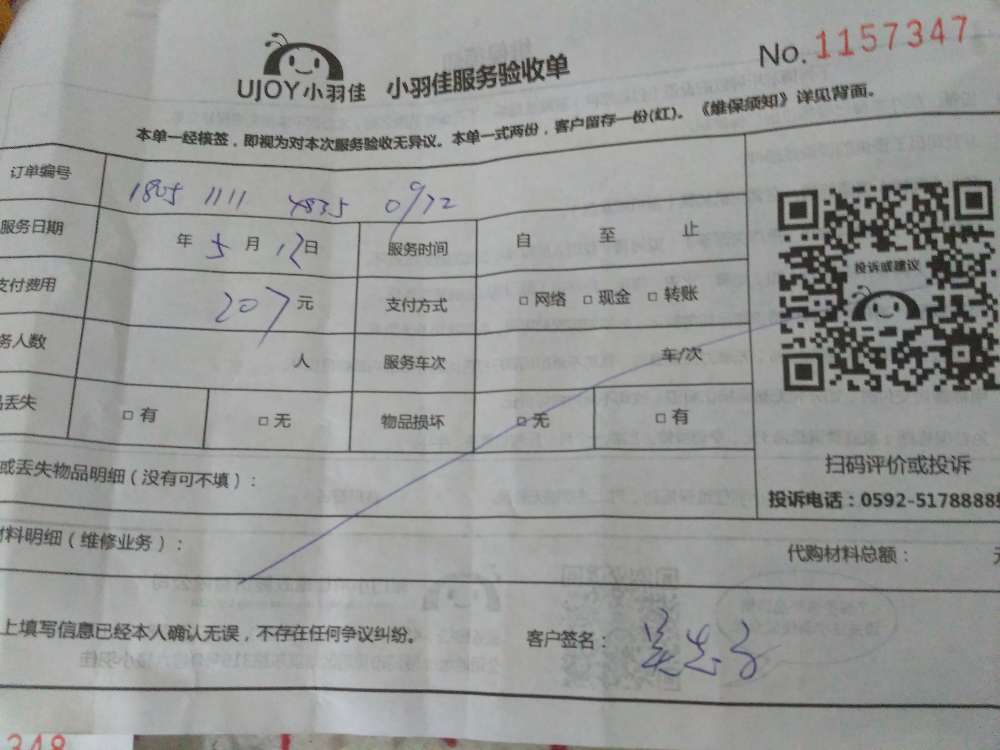 UJOY小羽佳 小羽佳服务验收单 No. 1157347
本单一经核签，即视为对本次服务验收无异议。本单一式两份，客户留存一份(红)。《维保须知》详见背面。
订单编号 1805 1111 4835 0972
服务日期 年 5 月 12 日 服务时间 自 至 止
支付费用 207 元 支付方式 □ 网络 □ 现金 □ 转账
务人数 人 服务车次 车/次
丢失 □ 有 □ 无 物品损坏 □ 无 □ 有
投诉或建议
扫码评价或投诉
投诉电话：0592-5178888
或丢失物品明细（没有可不填）：
材料明细（维修业务）： 代购材料总额：
上填写信息已经本人确认无误，不存在任何争议纠纷。 客户签名：
348